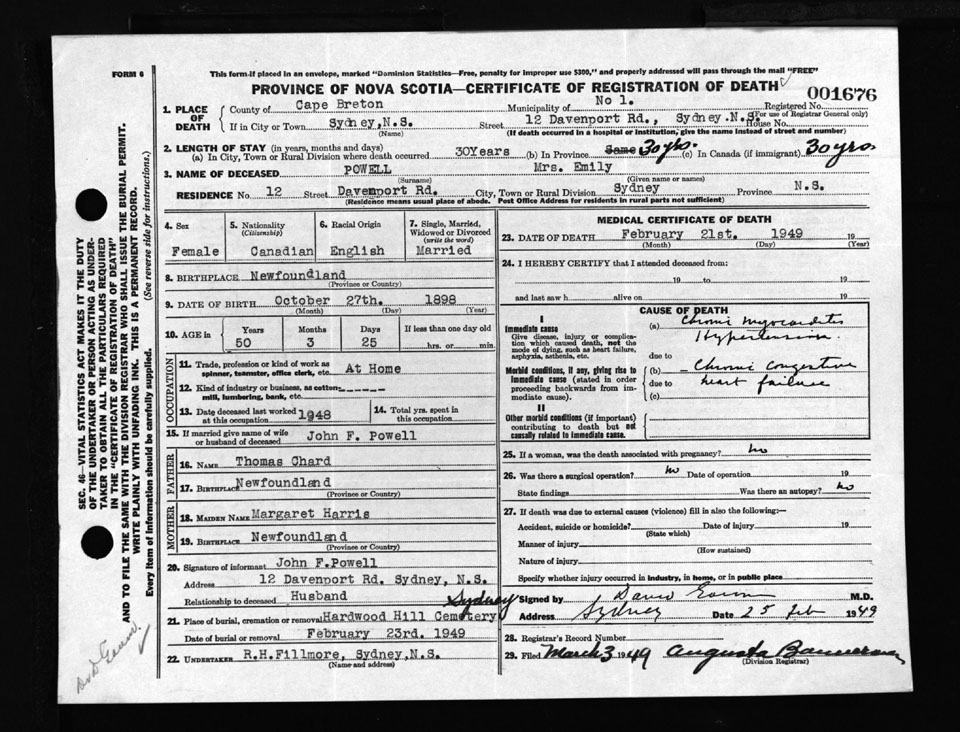 FORM 6
This form if placed in an envelope, marked "Dominion Statistics—Free, penalty for improper use $300," and properly addressed will pass through the mail "FREE"
PROVINCE OF NOVA SCOTIA—CERTIFICATE OF REGISTRATION OF DEATH
001676
1. PLACE OF DEATH
County of Cape Breton Municipality of No 1. Registered No.
(For use of Registrar General only)
If in City or Town Sydney, N.S. Street 12 Davenport Rd., Sydney.N.S. House No.
(Name) (If death occurred in a hospital or institution, give the name instead of street and number)
2. LENGTH OF STAY (in years, months and days)
(a) In City, Town or Rural Division where death occurred 30Years (b) In Province Same 30 yrs. (c) In Canada (if immigrant) 30 yrs
3. NAME OF DECEASED POWELL Mrs. Emily
(Surname) (Given name or names)
RESIDENCE No 12 Street Davenport Rd. City, Town or Rural Division Sydney Province N.S.
(Residence means usual place of abode. Post Office Address for residents in rural parts not sufficient)
4. Sex
Female
5. Nationality
(Citizenship)
Canadian
6. Racial Origin
English
7. Single, Married, Widowed or Divorced
(write the word)
Married
8. BIRTHPLACE Newfoundland
(Province or Country)
9. DATE OF BIRTH October 27th. 1898
(Month) (Day) (Year)
10. AGE in
Years Months Days If less than one day old
50 3 25 hrs. or min.
OCCUPATION
11. Trade, profession or kind of work as spinner, teamster, office clerk, etc. At Home
12. Kind of industry or business, as cotton-mill, lumbering, bank, etc. -------
13. Date deceased last worked at this occupation 1948
14. Total yrs. spent in this occupation
15. If married give name of wife or husband of deceased John F. Powell
FATHER
16. NAME Thomas Chard
17. BIRTHPLACE Newfoundland
(Province or Country)
MOTHER
18. MAIDEN NAME Margaret Harris
19. BIRTHPLACE Newfoundland
(Province or Country)
20. Signature of informant John F.Powell
Address 12 Davenport Rd. Sydney, N.S.
Relationship to deceased Husband
Sydney
21. Place of burial, cremation or removal Hardwood Hill Cemetery
Date of burial or removal February 23rd. 1949
22. UNDERTAKER R.H.Fillmore, Sydney,N.S.
(Name and address)
MEDICAL CERTIFICATE OF DEATH
23. DATE OF DEATH February 21st. 1949 19
(Month) (Day) (Year)
24. I HEREBY CERTIFY that I attended deceased from:
19 to 19
and last saw h alive on 19
CAUSE OF DEATH
I
Immediate cause
Give disease, injury or complication which caused death, not the mode of dying, such as heart failure, asphyxia, asthenia, etc.
(a) Chronic myocarditis
Hypertension
due to
Morbid conditions, if any, giving rise to immediate cause (stated in order proceeding backwards from immediate cause).
(b) Chronic congestive
due to heart failure
(c)
II
Other morbid conditions (if important) contributing to death but not causally related to immediate cause.
25. If a woman, was the death associated with pregnancy? no
26. Was there a surgical operation? no Date of operation 19
State findings Was there an autopsy? no
27. If death was due to external causes (violence) fill in also the following:—
Accident, suicide or homicide? Date of injury 19
(State which)
Manner of injury
(How sustained)
Nature of injury
Specify whether injury occurred in industry, in home, or in public place
Signed by David M.D.
Address Sydney Date 25 Feb 1949
28. Registrar's Record Number
29. Filed March 3 1949 Augusta Bannerman
(Division Registrar)
SEC. 46—VITAL STATISTICS ACT MAKES IT THE DUTY
OF THE UNDERTAKER OR PERSON ACTING AS UNDER-
TAKER TO OBTAIN ALL THE PARTICULARS REQUIRED
IN THE "CERTIFICATE OF REGISTRATION OF DEATH"
AND TO FILE THE SAME WITH THE DIVISION REGISTRAR WHO SHALL ISSUE THE BURIAL PERMIT.
WRITE PLAINLY WITH UNFADING INK. THIS IS A PERMANENT RECORD.
Every item of information should be carefully supplied. (See reverse side for instructions.)